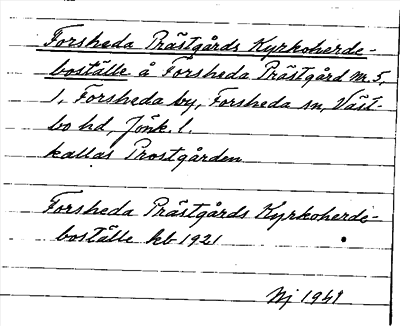 Forsheda Prästgårds Kyrkoherde-
boställe å Forsheda Prästgård nr. 5,
1, Forsheda by, Forsheda sn, Väst-
bo hd, Jönk. l.
kallas Prostgården
Forsheda Prästgårds Kyrkoherde-
boställe kb 1921
Nj 1941